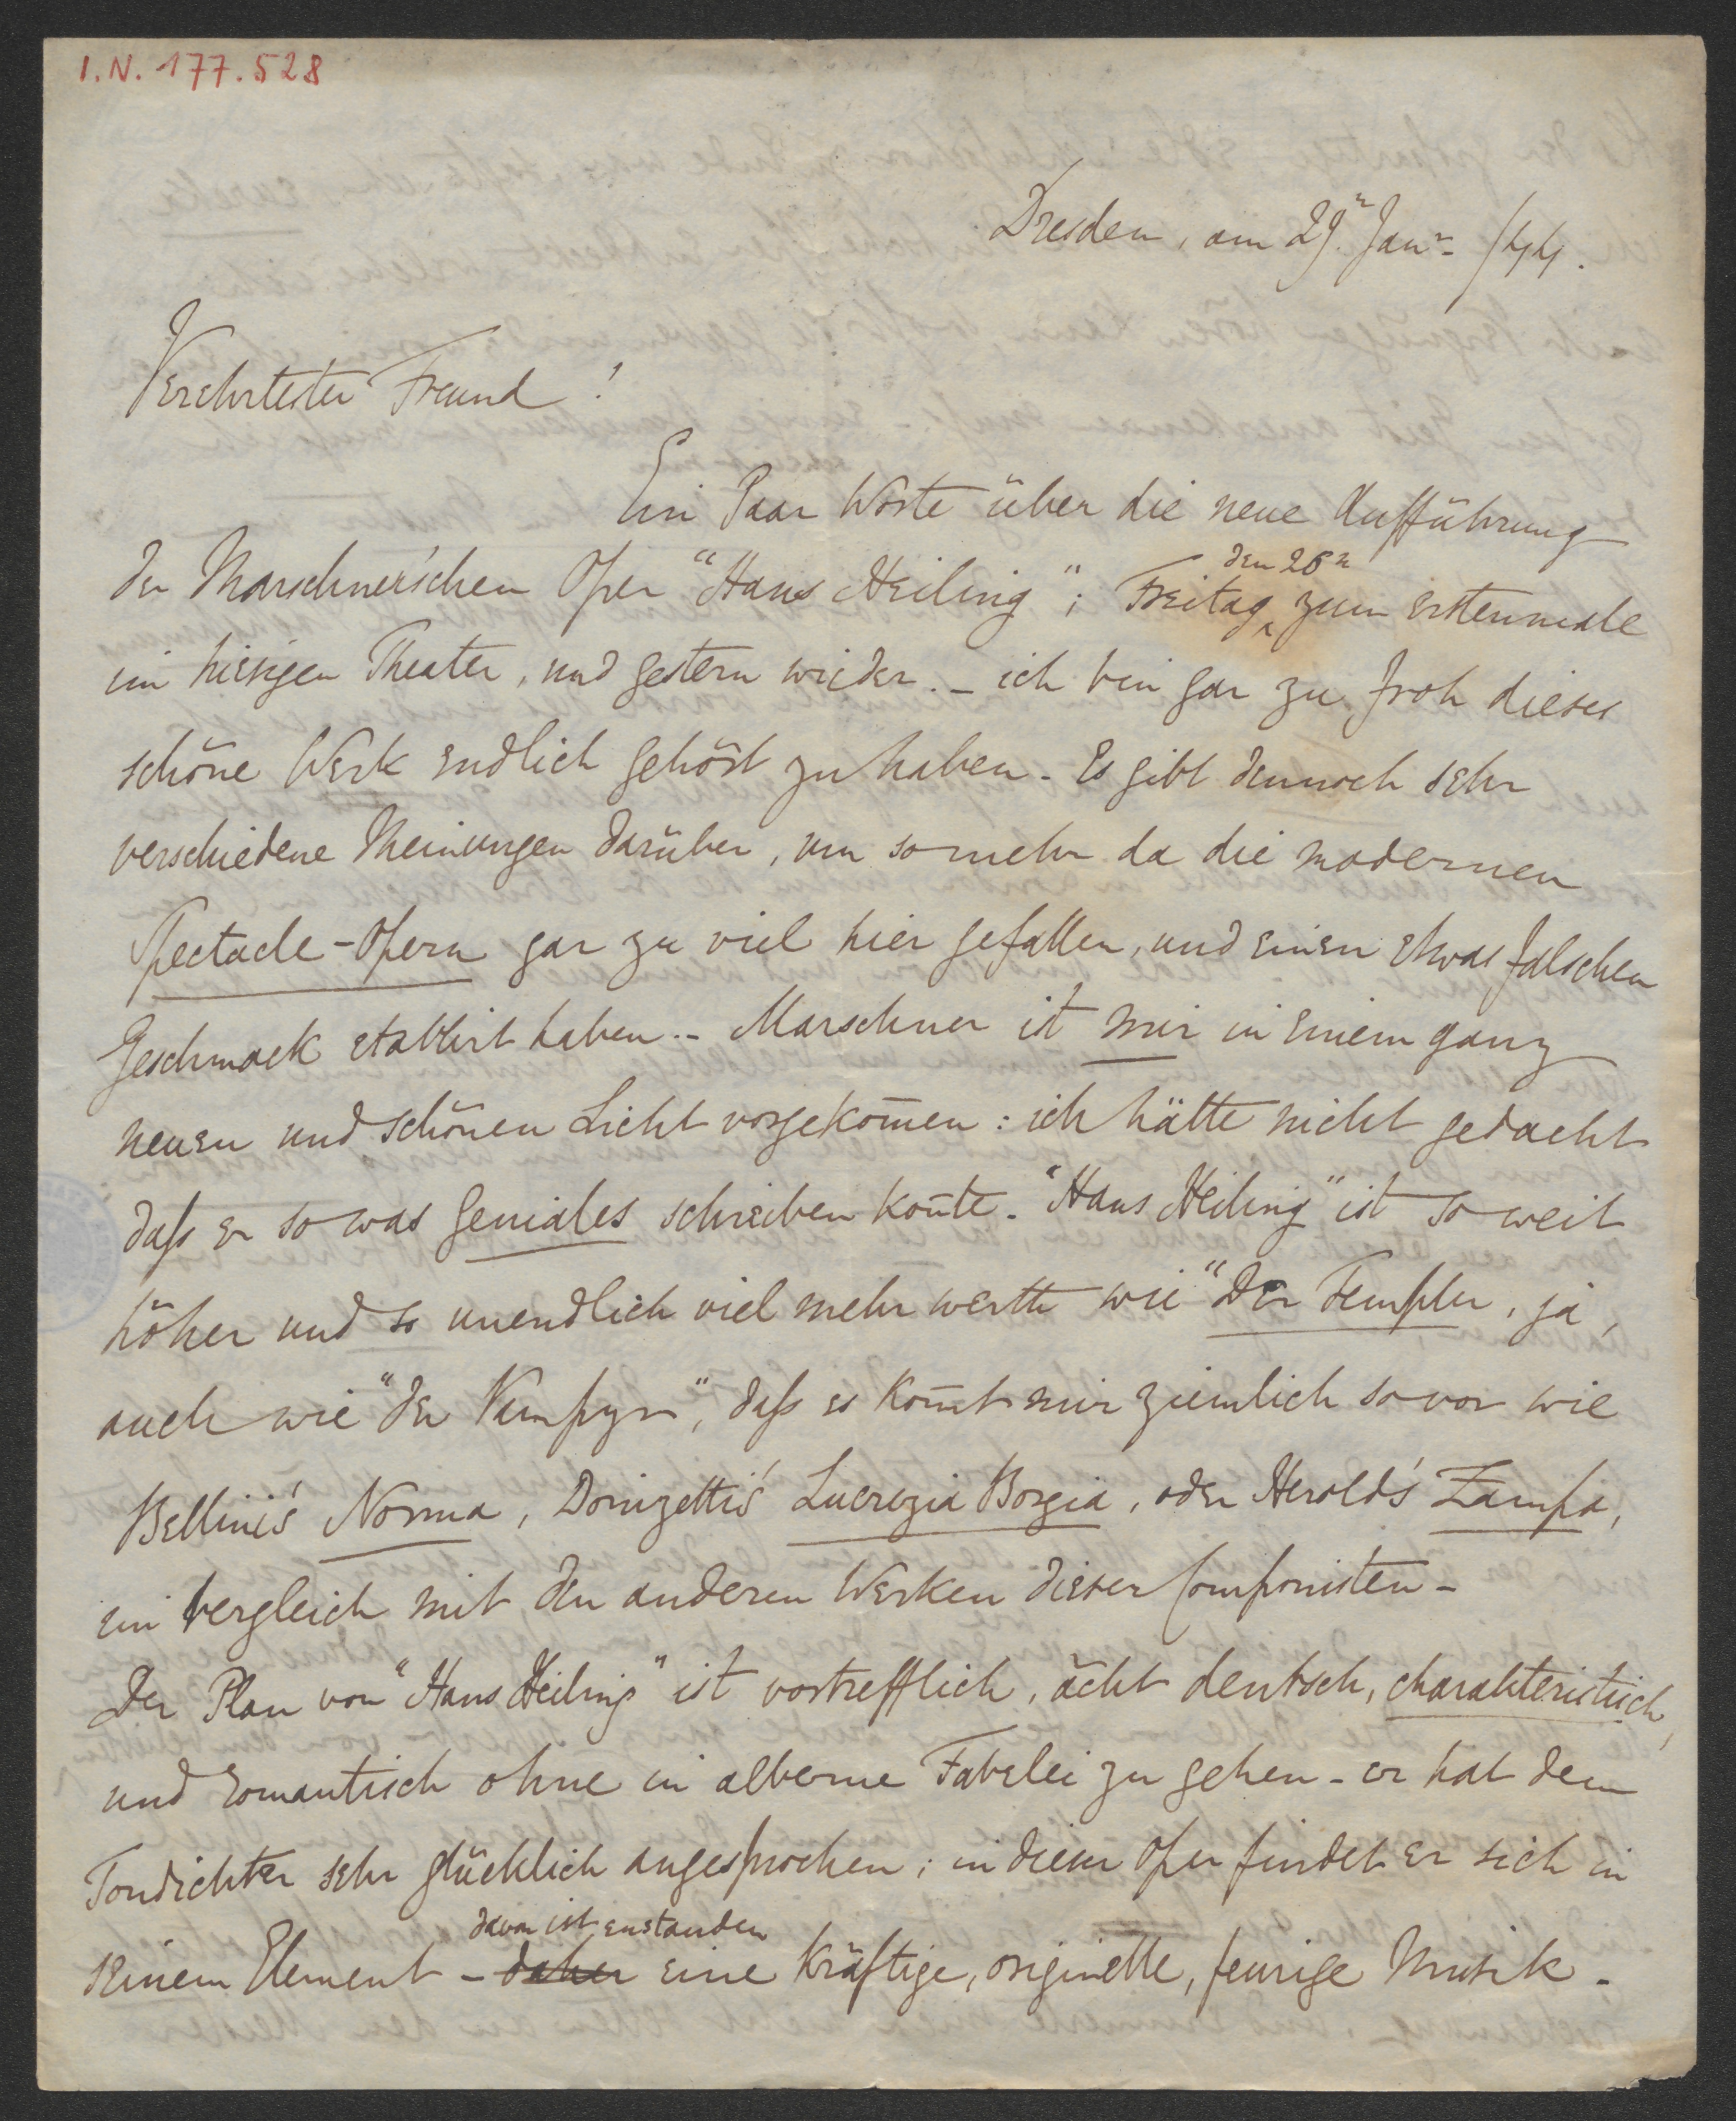 I.N. 177.528
Dresden, am 29n. Janr. /44.
Verehrtester Freund!
Ein Paar Worte über die neue Aufführung
der Marschner'schen Oper "Hans Heiling"; Freitag den 26n zum erstenmale
im hiesigen Theater, und gestern wieder. – ich bin gar zu froh dieses
schöne Werk endlich gehört zu haben – Es gibt dennoch sehr
verschiedene Meinungen darüber, um so mehr da die modernen
Spectacle-Opern gar zu viel hier gefallen, und einen etwas falschen
Geschmack etablirt haben. – Marschner ist mir in einem ganz
neuen und schönen Licht vorgekom̄en: ich hätte nicht gedacht
daß er so was geniales schreiben kon̄te. "Hans Heiling" ist so weit
höher und so unendlich viel mehr werth wie "Der Templer, ja,
auch wie "der Vampyr", daß es kom̄t mir ziemlich so vor wie
Bellini's Norma, Donizetti's Lucrezia Borgia, oder Herold's Zampa,
im vergleich mit den anderen Werken dieser Componisten –
Der Plan von "Hans Heiling" ist vortrefflich, ächt deutsch, charakteristisch,
und romantisch ohne in alberne Fabelei zu gehen – er hat dem
Tondichter sehr glücklich angesprochen; in dieser Oper findet er sich in
seinem Element – daher davon ist enstanden eine kräftige, originelle, feurige Musik –